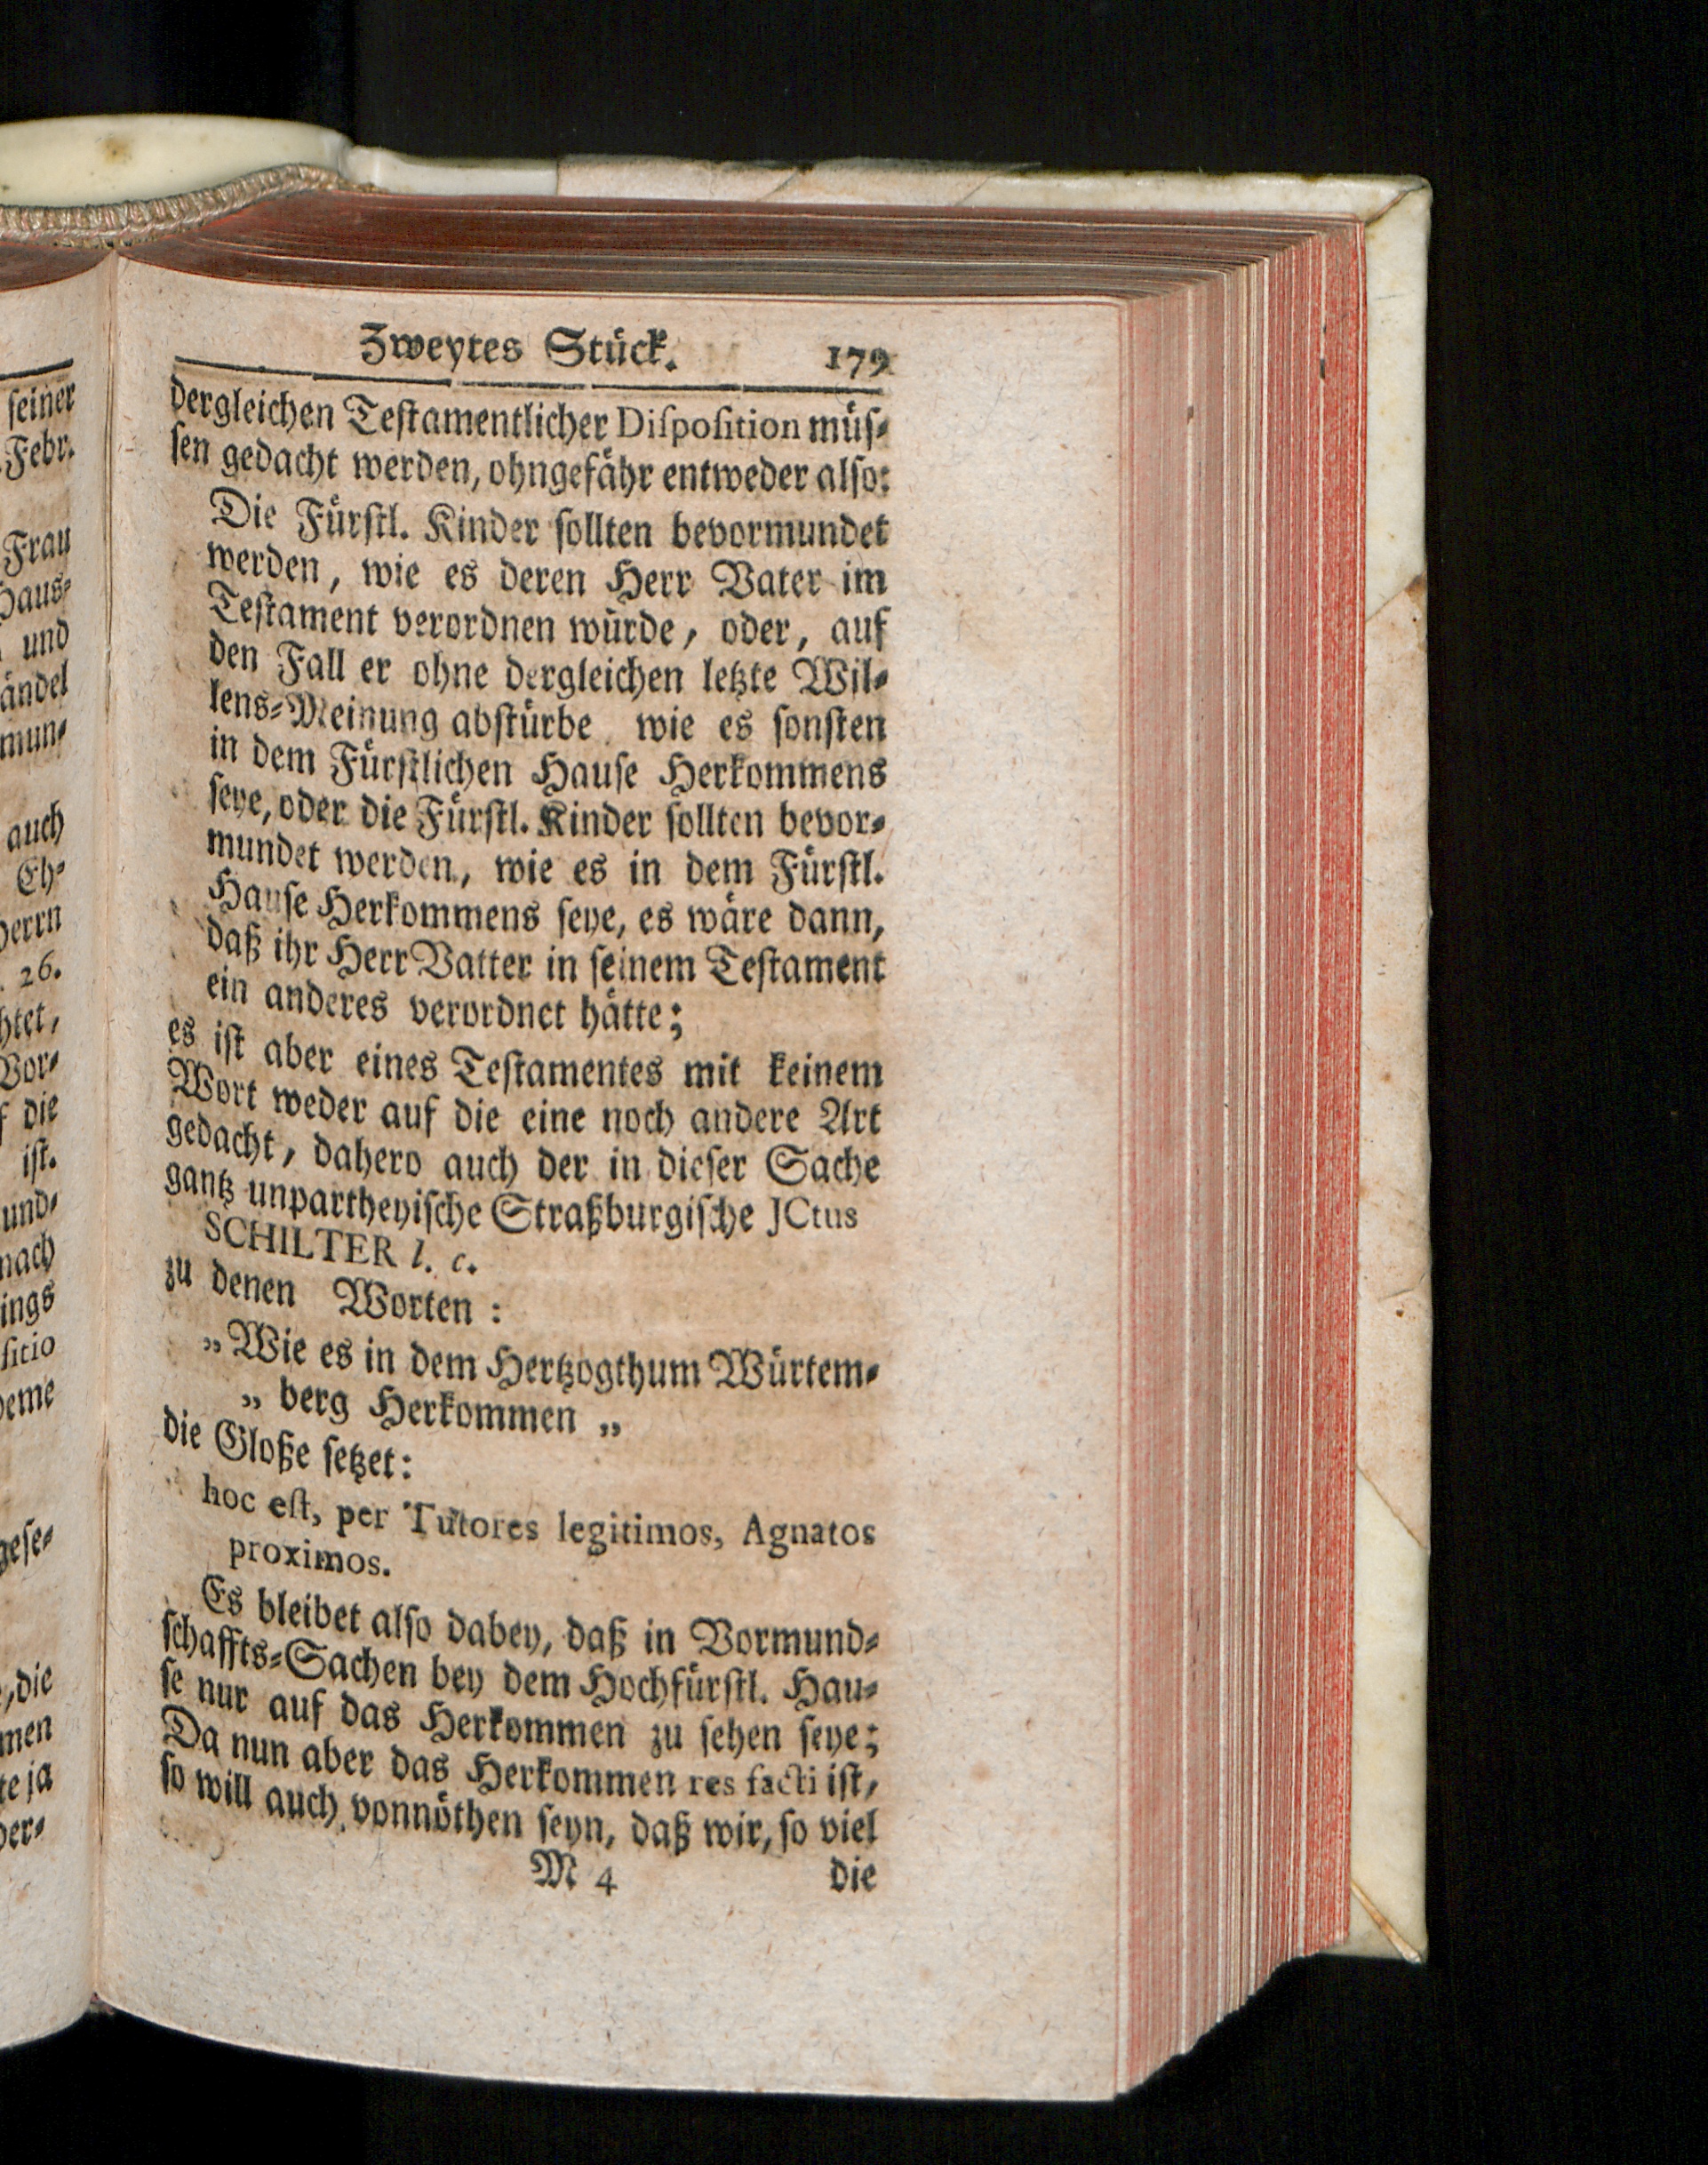 seiner
Febr.
Frau
Haus-
und
ändel
mun-
auch
Eh-
herrn
26.
htet,
Vor-
f die
ist.
und-
nach
ings
sitio
deme
gese-
, die
men
te ja
der-
Zweytes Stück. 179
dergleichen Testamentlicher Disposition müs-
sen gedacht werden, ohngefähr entweder also:
Die Fürstl. Kinder sollten bevormundet
werden, wie es deren Herr Vater im
Testament verordnen würde, oder, auf
den Fall er ohne dergleichen letzte Wil-
lens-Meinung abstürbe wie es sonsten
in dem Fürstlichen Hause Herkommens
seye, oder die Fürstl. Kinder sollten bevor-
mundet werden, wie es in dem Fürstl.
Hause Herkommens seye, es wäre dann,
daß ihr Herr Vatter in seinem Testament
ein anderes verordnet hätte;
es ist aber eines Testamentes mit keinem
Wort weder auf die eine noch andere Art
gedacht, dahero auch der in dieser Sache
gantz unpartheyische Straßburgische JCtus
SCHILTER l. c.
zu denen Worten:
„Wie es in dem Hertzogthum Würtem-
„ berg Herkommen „
die Gloße setzet:
hoc est, per Tutores legitimos, Agnatos
proximos.
Es bleibet also dabey, daß in Vormund-
schaffts-Sachen bey dem Hochfürstl. Hau-
se nur auf das Herkommen zu sehen seye;
Da nun aber das Herkommen res facti ist,
so will auch vonnöthen seyn, daß wir, so viel
M 4 die